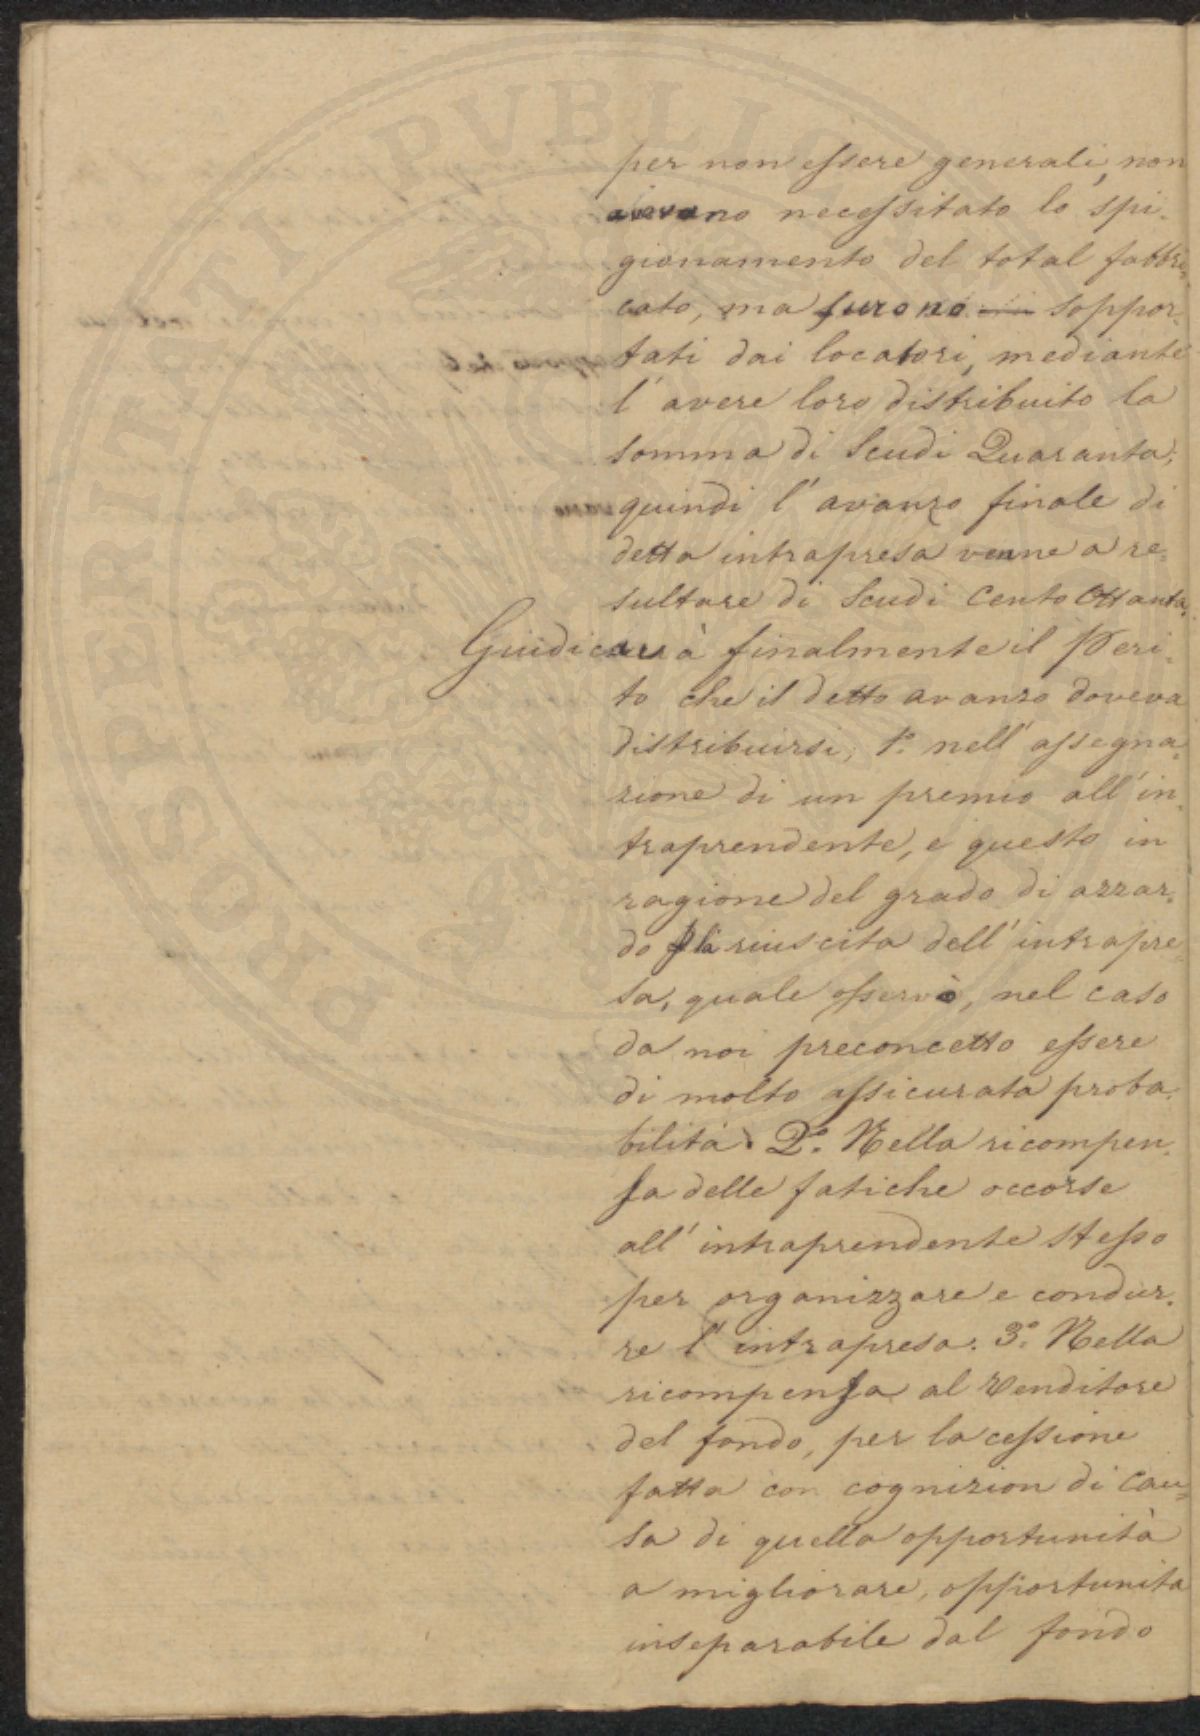 per non essere generali, non
aievano necessitato lo spi-
gionamento del total fabbri-
cato, ma furono soppor-
tati dai locatori, mediante
l'avere loro distribuito la
somma di Scudi Quaranta;
quindi l'avanzo finale di
detta intrapresa venne a re-
sultare di Scudi Cento Ottanta.
Giudicarà finalmente il Peri-
to che il detto avanzo doveva
distribuirsi; 1º nell'assegna-
zione di un premio all'in-
traprendente, e questo in
ragione del grado di azzar-
do riuscita dell'intrapre-
sa, quale osservò, nel caso
da noi preconcetto essere
di molto assicurata proba-
bilità. 2º. Nella ricompen-
sa delle fatiche occorse
all'intraprendente stesso
per organizzare e condur-
re l'intrapresa. 3º. Nella
ricompensa al Venditore
del fondo, per la cessione
fatta con cognizion di cau-
sa di quella opportunità
a migliorare, opportunità
inseparabile dal fondo
PROSPERITATI PVBLI